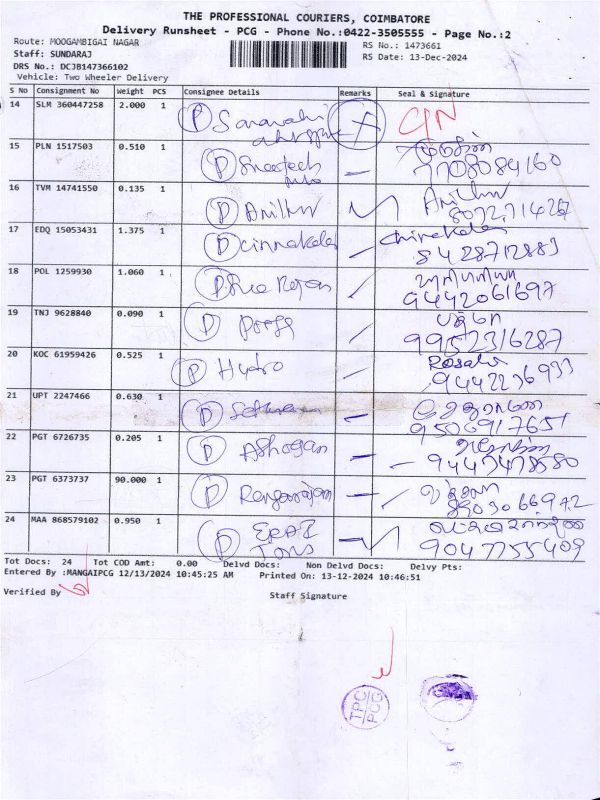 THE PROFESSIONAL COURIERS, COIMBATORE
Delivery Runsheet - PCG - Phone No.:0422-3505555 - Page No.:2
Route: MOOGAMBIGAI NAGAR
RS No.: 1473661
Staff: SUNDARAJ
RS Date: 13-Dec-2024
DRS No.: DCJB147366102
Vehicle: Two Wheeler Delivery
S No Consignment No Weight PCS Consignee Details Remarks Seal & Signature
14 SLM 360447258 2.000 1 D
15 PLN 1517503 0.510 1 D
7708084160
16 TVM 14741550 0.135 1 D
17 EDQ 15053431 1.375 1 D
8428712883
18 POL 1259930 1.060 1 D
9442061697
19 TNJ 9628840 0.090 1 D
9952316287
20 KOC 61959426 0.525 1 D Hydro
9442236933
21 UPT 2247466 0.630 1 D
9506917651
22 PGT 6726735 0.205 1 D Ashogan
23 PGT 6373737 90.000 1 D Rengarajan
24 MAA 868579102 0.950 1 D
9047755409
Tot Docs: 24 Tot COD Amt: 0.00 Delvd Docs: Non Delvd Docs: Delvy Pts:
Entered By :MANGAIPCG 12/13/2024 10:45:25 AM Printed On: 13-12-2024 10:46:51
Verified By
Staff Signature
TPC
PCG